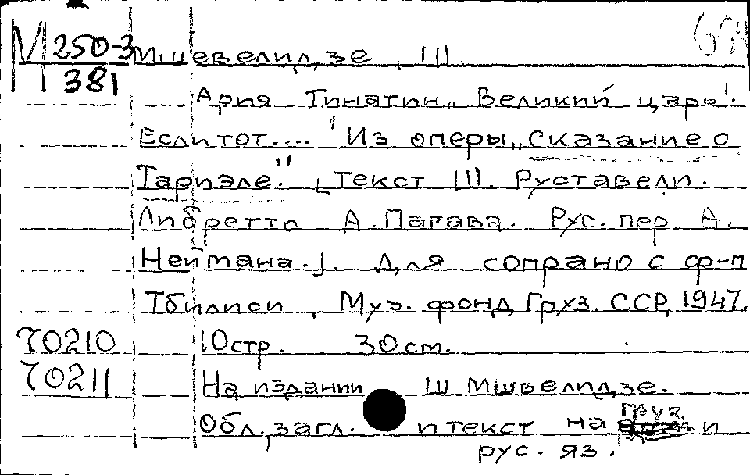 М 250-3 Мшевелидзе, Ш
381
Ария Тинатин "Великий царь!
Если тот.... Из оперы "Сказание о
Тариэле" [Текст Ш. Руставели.
Либретто А. Пагава. Рус. пер. А.
Неймана.]. Для сопрано с ф-п
Тбилиси, Муз. фонд Груз. ССР, 1947.
70210 10стр. 30см.
70211 На издании Ш Мшвелидзе.
Обл., загл. и текст на груз. и
рус. яз.